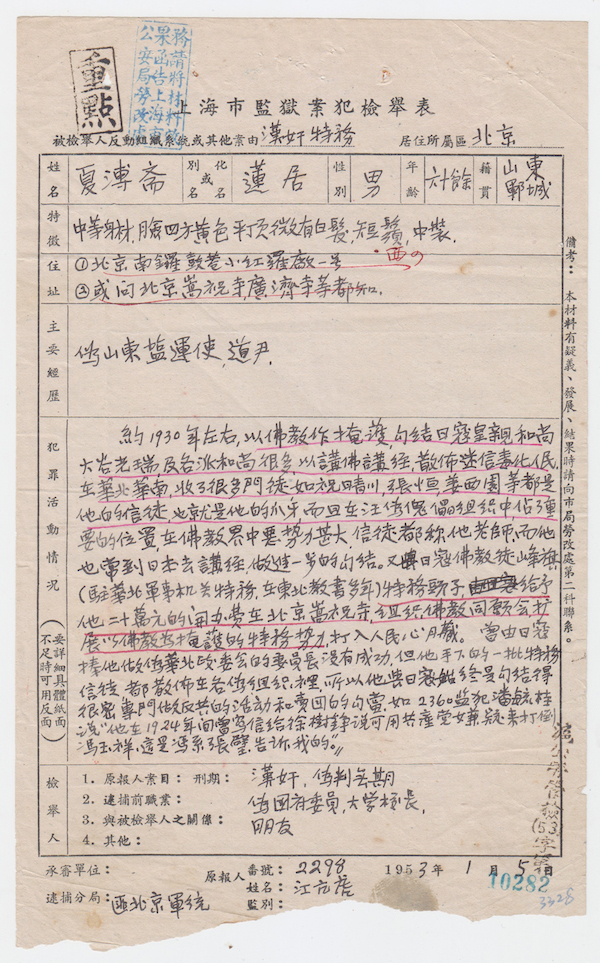 重點
務請將材料結
果函告上海市
公安局勞改處
上海市監獄案犯檢舉表
被檢舉人反動組織系統或其他案由 漢奸特務 居住所屬區 北京
姓名 夏溥斋 別或化名 蓮居 性別 男 年齡 六十餘 籍貫 山東鄆城
特徵 中等身材,臉四方黃色平頂微有白髮,短鬚,中裝.
住址 ①北京南鑼鼓巷小紅羅廠一号
西の
②或问北京嵩祝寺,廣濟寺等都知.
主要經歷 偽山東鹽運使,道尹,
犯罪活動情况(要詳細具體紙面不足時可用反面)
約1930年左右,以佛教作掩護,勾結日寇皇親和尚
大谷光瑞,及各派和尚很多,以講佛講經,散佈迷信毒化人民,
在華北華南,收了很多門徒如祝晴川,張恒,姜西園等都是
他的信徒,也就是他的爪牙而且在汪偽傀儡組织中佔了重
要的位置,在佛教界中要势力甚大信徒都称他老師,而他
也常到日本去講經,做進一步的勾結。又與日寇佛教徒山峯旗
(駐華北軍事机关特務,在東北教書多年)特務頭子給予
他二十萬元的開办費在北京嵩祝寺,組织,佛教同願会扩
展以佛教為掩護的特務势力,打入人民心月藏。當由日寇
捧他做偽華北政委会的委員長没有成功,但他手下的一批特務
信徒都散佈在各偽組织裡,所以他與日寇始終是勾結得
很密專門做反共的活动和賣囯的勾當,如2360监犯潘毓桂
說“他在1924年間當写信給徐樹錚說可用共產党嫌疑来打倒
馮玉祥,這是馮系張璧告诉我的。”
備考: 本材料有疑義、發展、結果時請向市局勞改處第二科聯系。
檢舉人
1. 原報人案目: 刑期: 漢奸,偽判無期
2. 逮捕前職業: 偽囯府委員,大学校長,
3. 與被檢舉人之關係: 朋友
4. 其他:
承審單位: 原報人 番號: 2298 1953年1月5日
姓名: 江亢虎
逮捕分局: 匪北京軍统 監別:
10282
3328